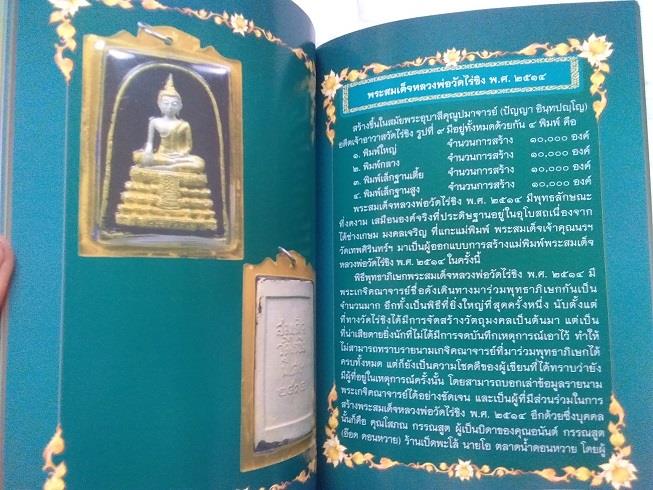 พระสมเด็จหลวงพ่อวัดไร่ขิง พ.ศ. ๒๕๑๔
สร้างขึ้นในสมัยพระอุบาลีคุณูปมาจารย์ (ปัญญา อินฺทปญฺโญ)
อดีตเจ้าอาวาสวัดไร่ขิง รูปที่ ๙ มีอยู่ทั้งหมดด้วยกัน ๔ พิมพ์ คือ
๑. พิมพ์ใหญ่ จำนวนการสร้าง ๑๐,๐๐๐ องค์
๒. พิมพ์กลาง จำนวนการสร้าง ๑๐,๐๐๐ องค์
๓. พิมพ์เล็กฐานเตี้ย จำนวนการสร้าง ๑๐,๐๐๐ องค์
๔. พิมพ์เล็กฐานสูง จำนวนการสร้าง ๑๐,๐๐๐ องค์
พระสมเด็จหลวงพ่อวัดไร่ขิง พ.ศ. ๒๕๑๔ มีพุทธลักษณะ
ที่งดงาม เสมือนองค์จริงที่ประดิษฐานอยู่ในอุโบสถเนื่องจาก
ได้ช่างเกษม มงคลเจริญ ที่แกะแม่พิมพ์ พระสมเด็จเจ้าคุณนรฯ
วัดเทพศิรินทร์ฯ มาเป็นผู้ออกแบบการสร้างแม่พิมพ์พระสมเด็จ
หลวงพ่อวัดไร่ขิง พ.ศ. ๒๕๑๔ ในครั้งนี้
พิธีพุทธาภิเษกพระสมเด็จหลวงพ่อวัดไร่ขิง พ.ศ. ๒๕๑๔ มี
พระเกจิคณาจารย์ชื่อดังเดินทางมาร่วมพุทธาภิเษกกันเป็น
จำนวนมาก อีกทั้งเป็นพิธีที่ยิ่งใหญ่ที่สุดครั้งหนึ่ง นับตั้งแต่
ที่ทางวัดไร่ขิงได้มีการจัดสร้างวัตถุมงคลเป็นต้นมา แต่เป็น
ที่น่าเสียดายยิ่งนักที่ไม่ได้มีการจดบันทึกเหตุการณ์เอาไว้ ทำให้
ไม่สามารถทราบรายนามเกจิคณาจารย์ที่มาร่วมพุทธาภิเษกได้
ครบทั้งหมด แต่ก็ยังเป็นความโชคดีของผู้เขียนที่ได้ทราบว่ายัง
มีผู้ที่อยู่ในเหตุการณ์ครั้งนั้น โดยสามารถบอกเล่าข้อมูลรายนาม
พระเกจิคณาจารย์ได้อย่างชัดเจน และเป็นผู้ที่มีส่วนร่วมในการ
สร้างพระสมเด็จหลวงพ่อวัดไร่ขิง พ.ศ. ๒๕๑๔ อีกด้วยซึ่งบุคคล
นั้นก็คือ คุณโสภณ กรรณสูต ผู้เป็นบิดาของคุณอนันต์ กรรณสูต
(อ๊อด ดอนหวาย) ร้านเป็ดพะโล้ นายโอ ตลาดน้ำดอนหวาย โดยผู้
๒๕๑๔